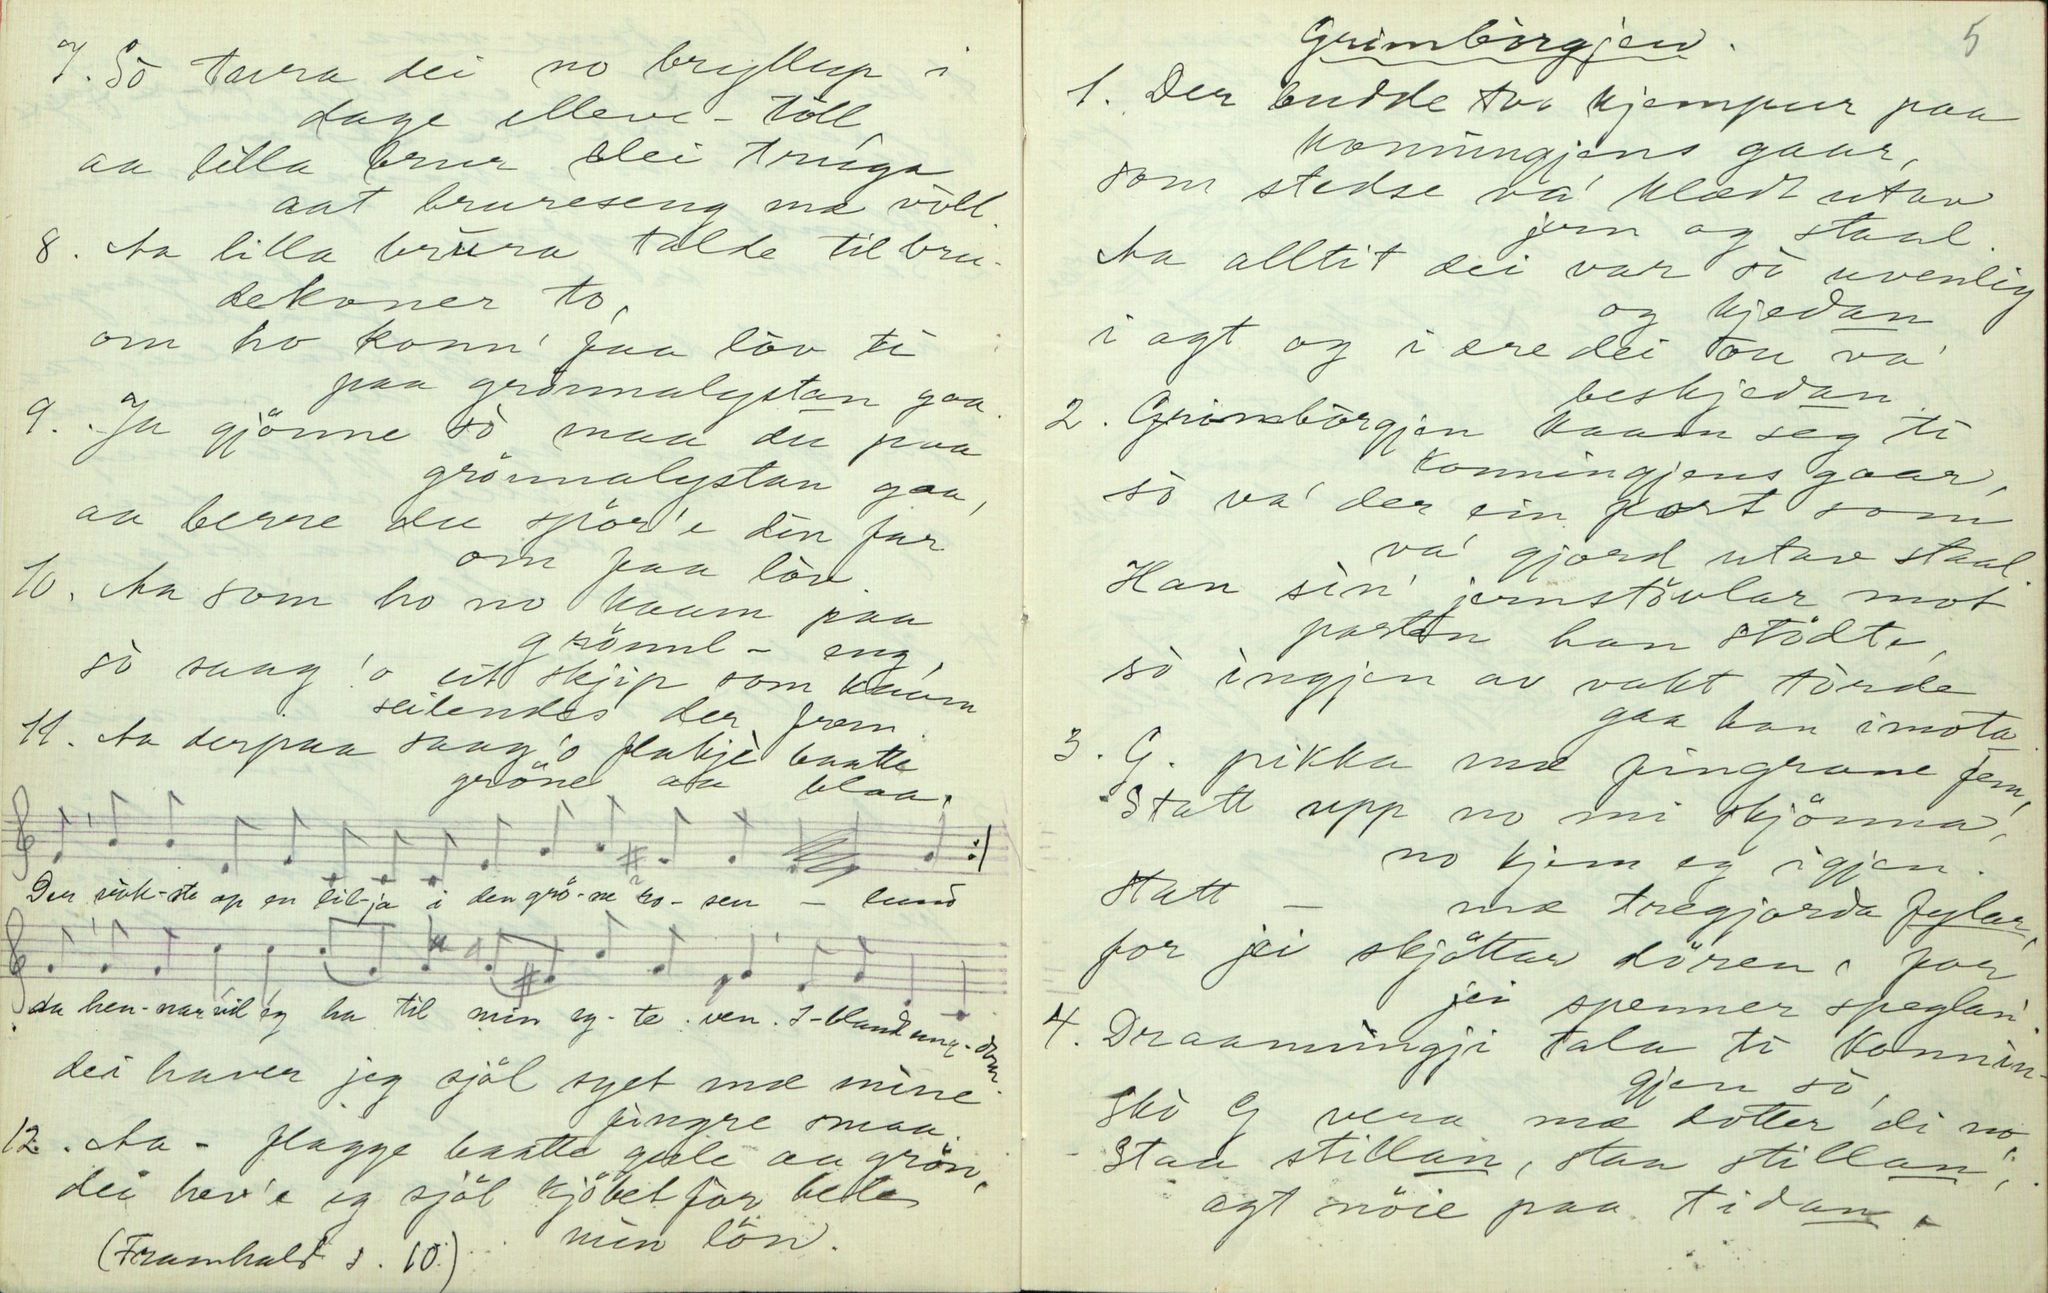 7. Sò tura dei no bryllup i
dage elleve - töll
aa lilla brur dei truga
aat brureseng mæ vòll.
8. Aa lilla brura talde til bru-
dekoner to,
om ho konn' faa löv ti
paa grönnalystan gaa.
9. Ja gjönne sò maa du paa
grönnalystan gaa,
aa berre du spör'e din far
om faa löv.
10. Aa som ho no kaam paa
grönnl - eng,
sò saag 'o eit skjip som kaam
seilendes der frem.
11. Aa derpaa saag'o flakje baatte
gröne aa blaa,
Der vòk-ste op en lil-ja i den grö-ne ro-sen - lund
da hen-nar vil eg ha til min eg-te ven. I-bland ung-dom.
dei haver jeg sjöl syet mæ mine
fingre smaa.
12. Aa - flagge baatte gule aa grön,
dei hev'e eg sjöl kjöbet for beste
min lön.
(Framhald s. 10.)
5
Grimborgjen.
1. Der budde tvo kjempur paa
konningjens gaar,
som stedse va' klædt utav
jern og staal.
Aa alltit dei var sò uvenlig
og kjedan
i agt og i ære dei tou va'
beskjedan.
2. Grimborgjen kaam seg ti
konningjens gaar,
sò va' der ein port som
va' gjord utav staal.
Han sin' jernstövlar mot
porten han stödte,
sò ingjen av vakt tòrde
gaa han imota
3. G. pikka mæ fingrane fem,
Statt upp no mi skjönna,
no kjem eg igjen.
Statt - mæ tregjorda fylar,
for jei skjöttar dören, for
jei spenner speglan'.
4. Draamningji tala ti konnin-
gjen sò,
Skò G vera mæ dotter di no
Staa stillan, staa stillan,
agt nöie paa tidan.